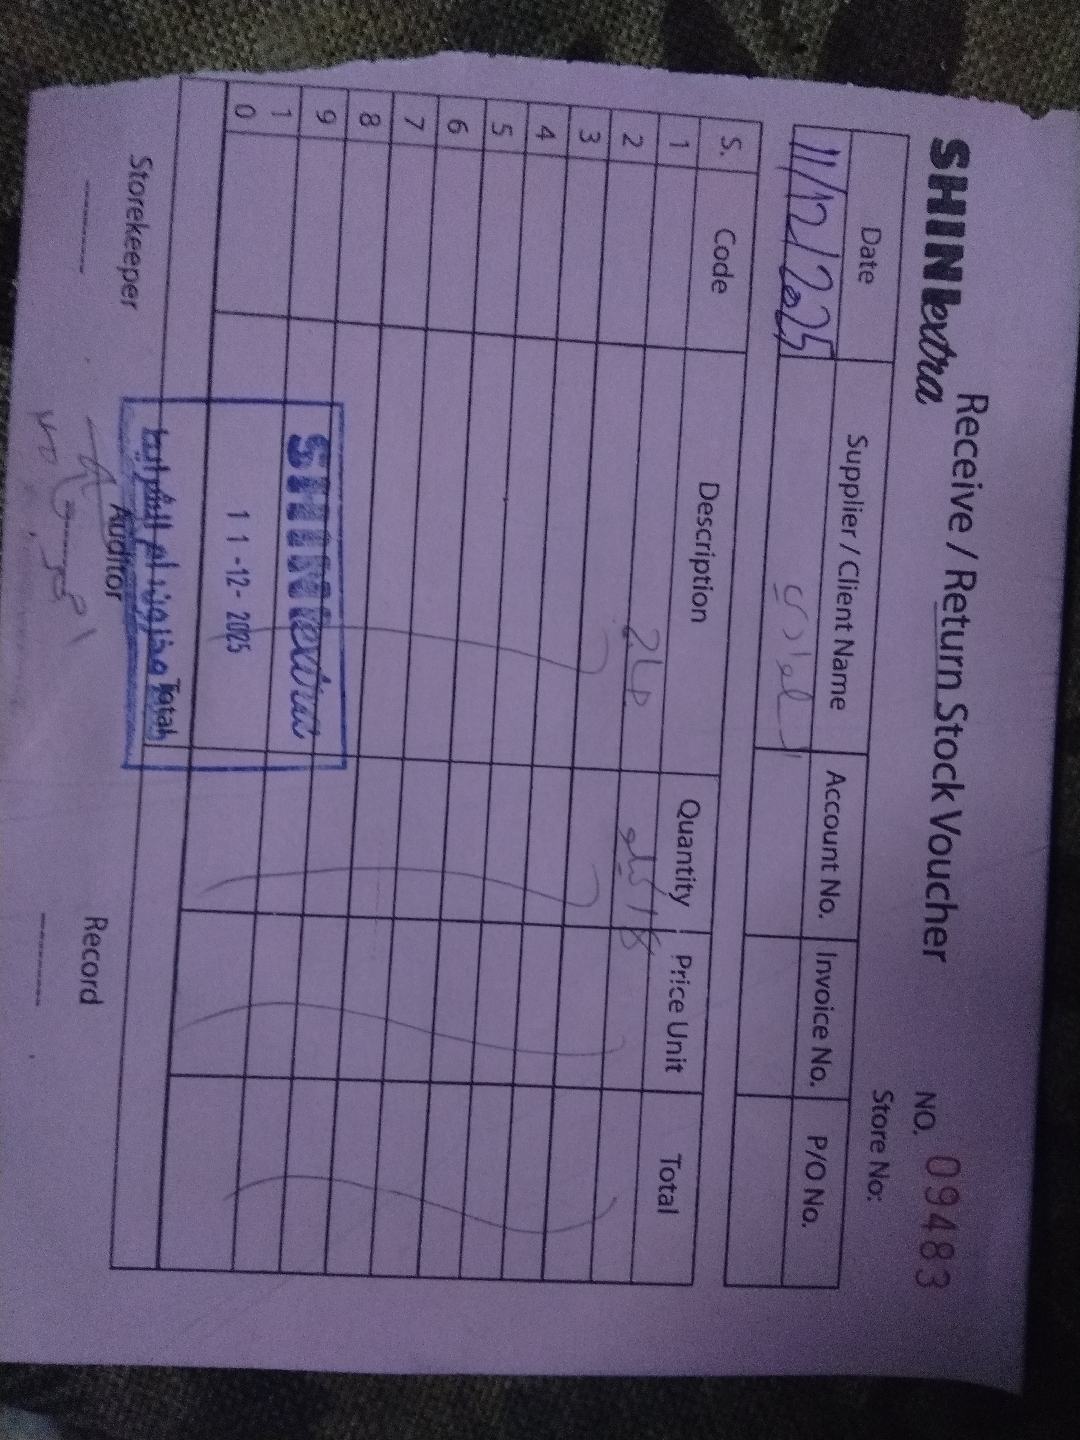 SHINextra
Receive / Return Stock Voucher
NO. 09483
Store No:
Date Supplier / Client Name Account No. Invoice No. P/O No.
11/12/2025
S. Code Description Quantity Price Unit Total
1
2
3
4
5
6
7
8
9
1
0
SHINextra
11-12-2025
Total
Storekeeper Auditor Record